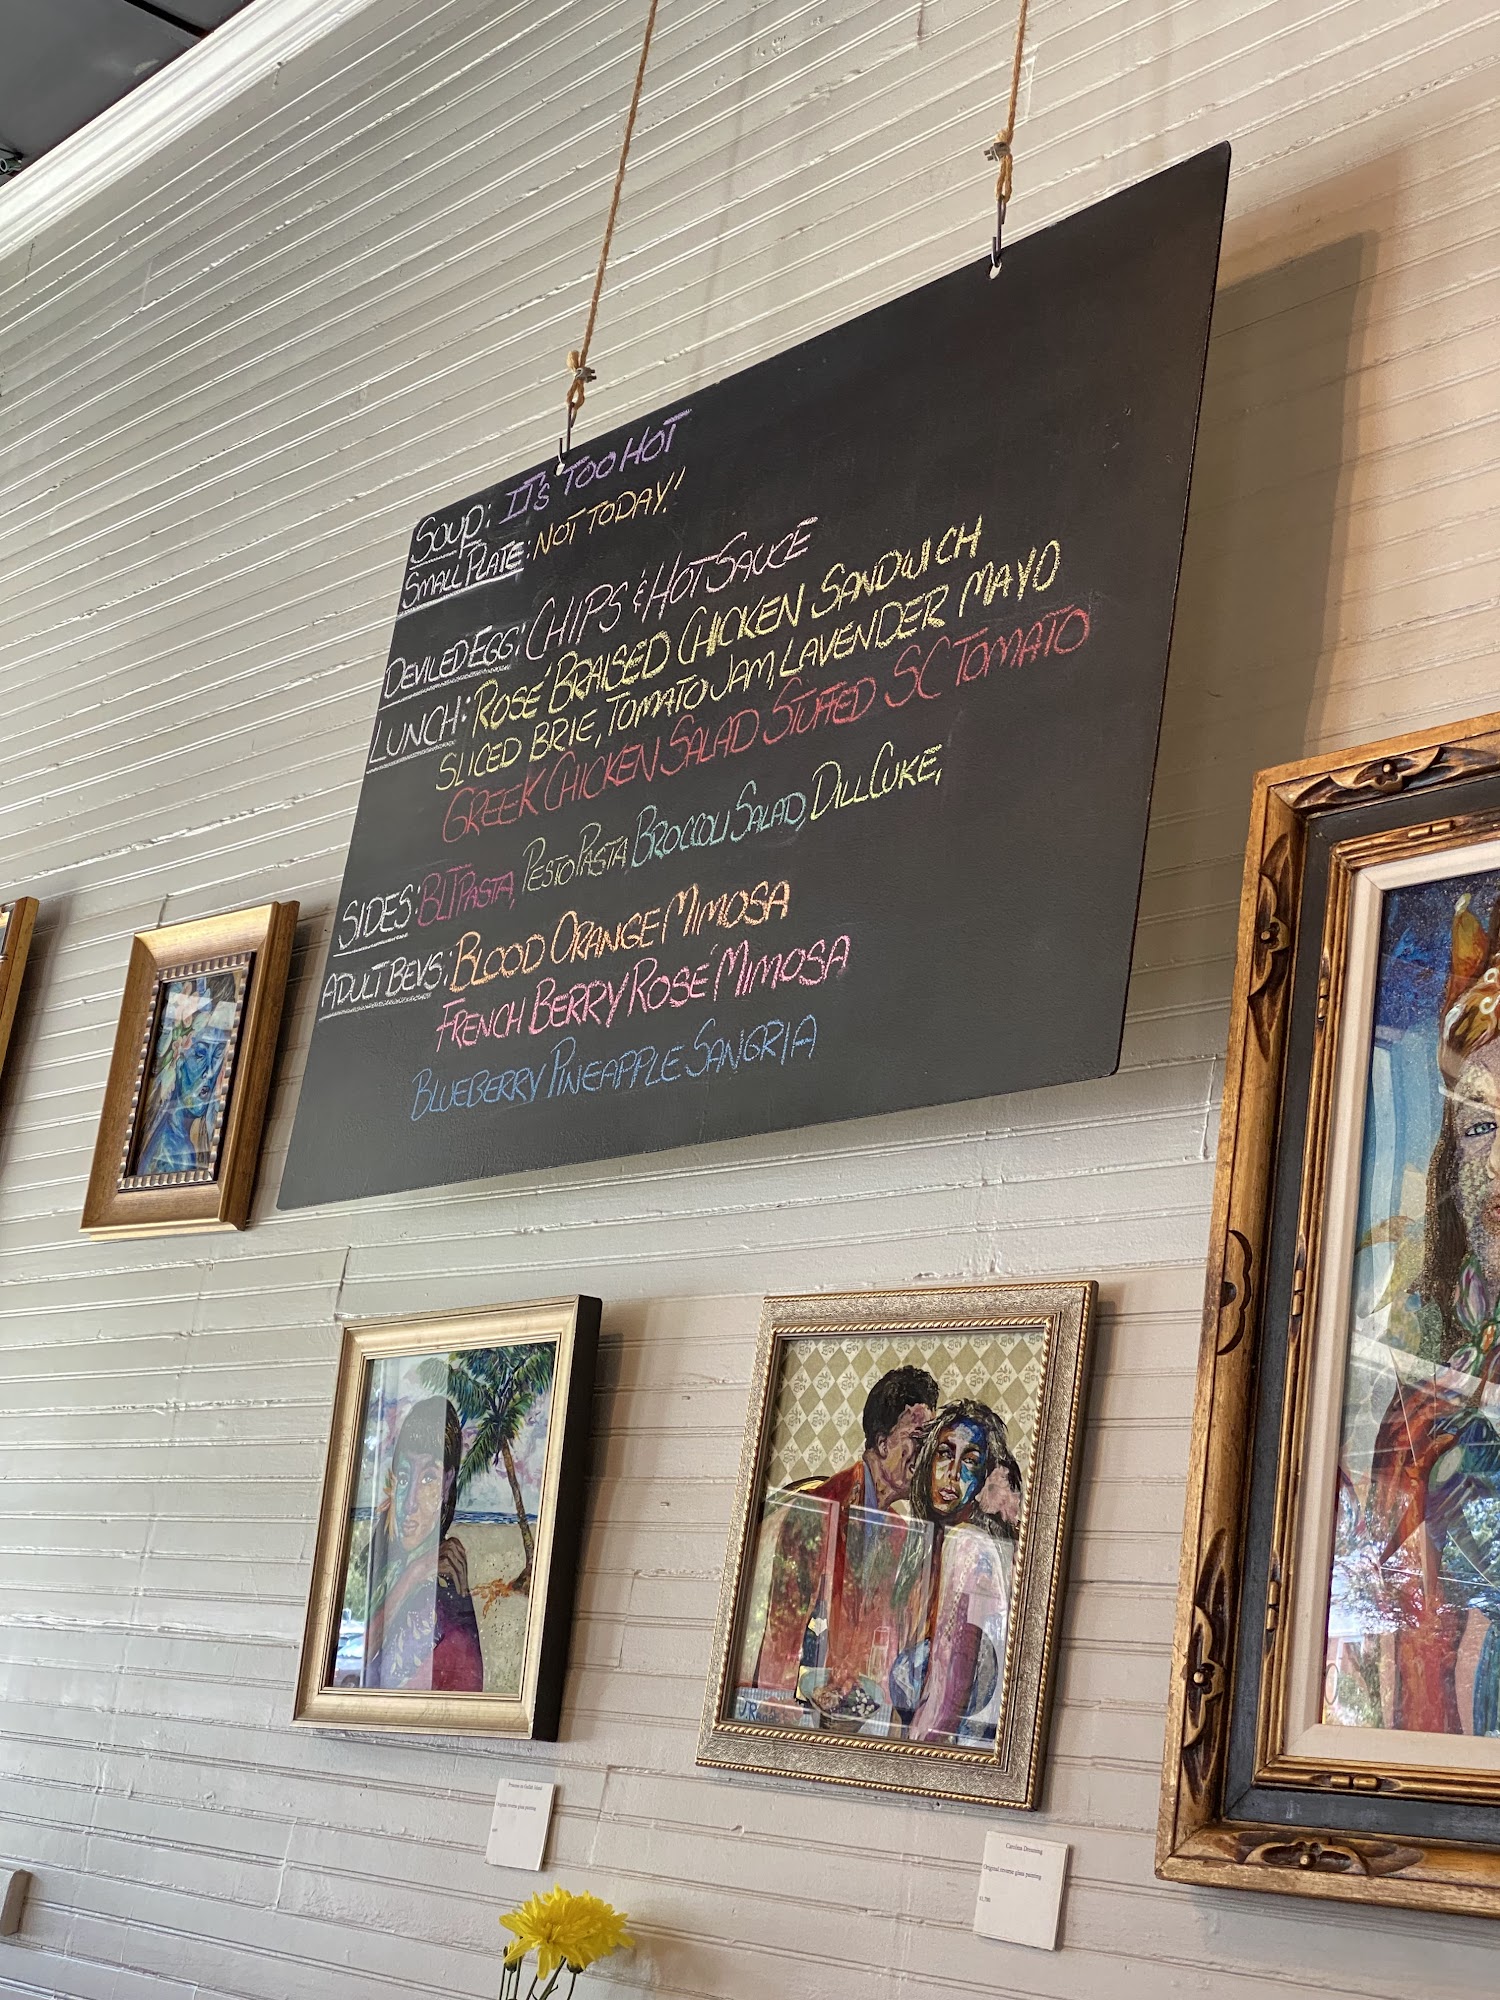 SOUP: IT'S TOO HOT
SMALL PLATE: NOT TODAY!
DEVILED EGG: CHIPS & HOT SAUCE
LUNCH: ROSÉ BRAISED CHICKEN SANDWICH
SLICED BRIE, TOMATO JAM, LAVENDER MAYO
GREEK CHICKEN SALAD STUFFED SC TOMATO
SIDES: BLT PASTA, PESTO PASTA, BROCCOLI SALAD, DILL CUKE,
ADULT BEVS: BLOOD ORANGE MIMOSA
FRENCH BERRY ROSÉ MIMOSA
BLUEBERRY PINEAPPLE SANGRIA
Original reverse glass painting
Carolina Dreaming
Original reverse glass painting